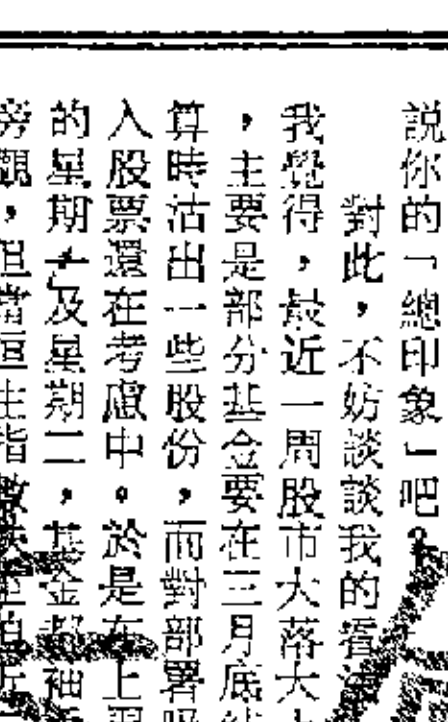 説你的「總印象」吧。
對此,不妨談談我的看法
我覺得,最近一周股市大落大
,主要是部分基金要在三月底結
算時沽出一些股份,而對部署吸
入股票還在考慮中。於是在上
的星期一及星期二,基金都袖
旁觀,但當恒生指數